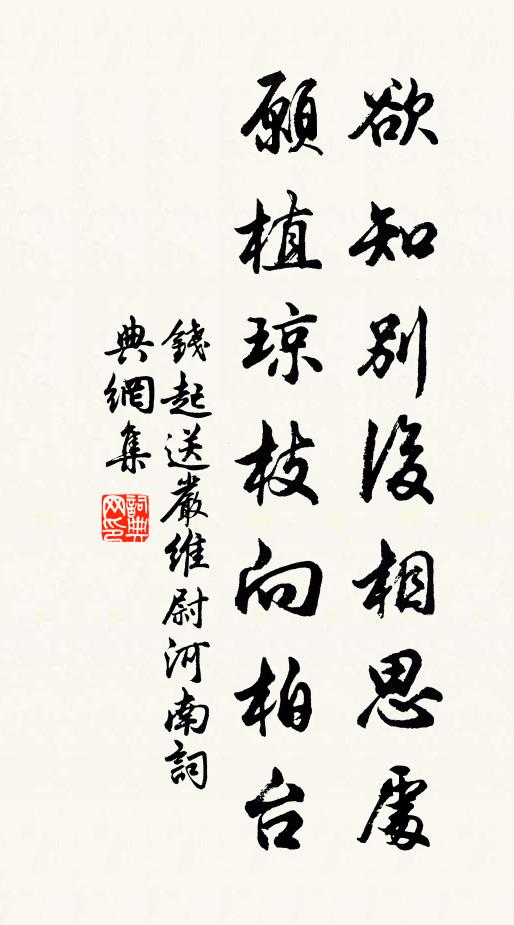 欲知別後相思處
願植琼枝向柏台
錢起送嚴維尉河南詞
典網集
詞典
网印